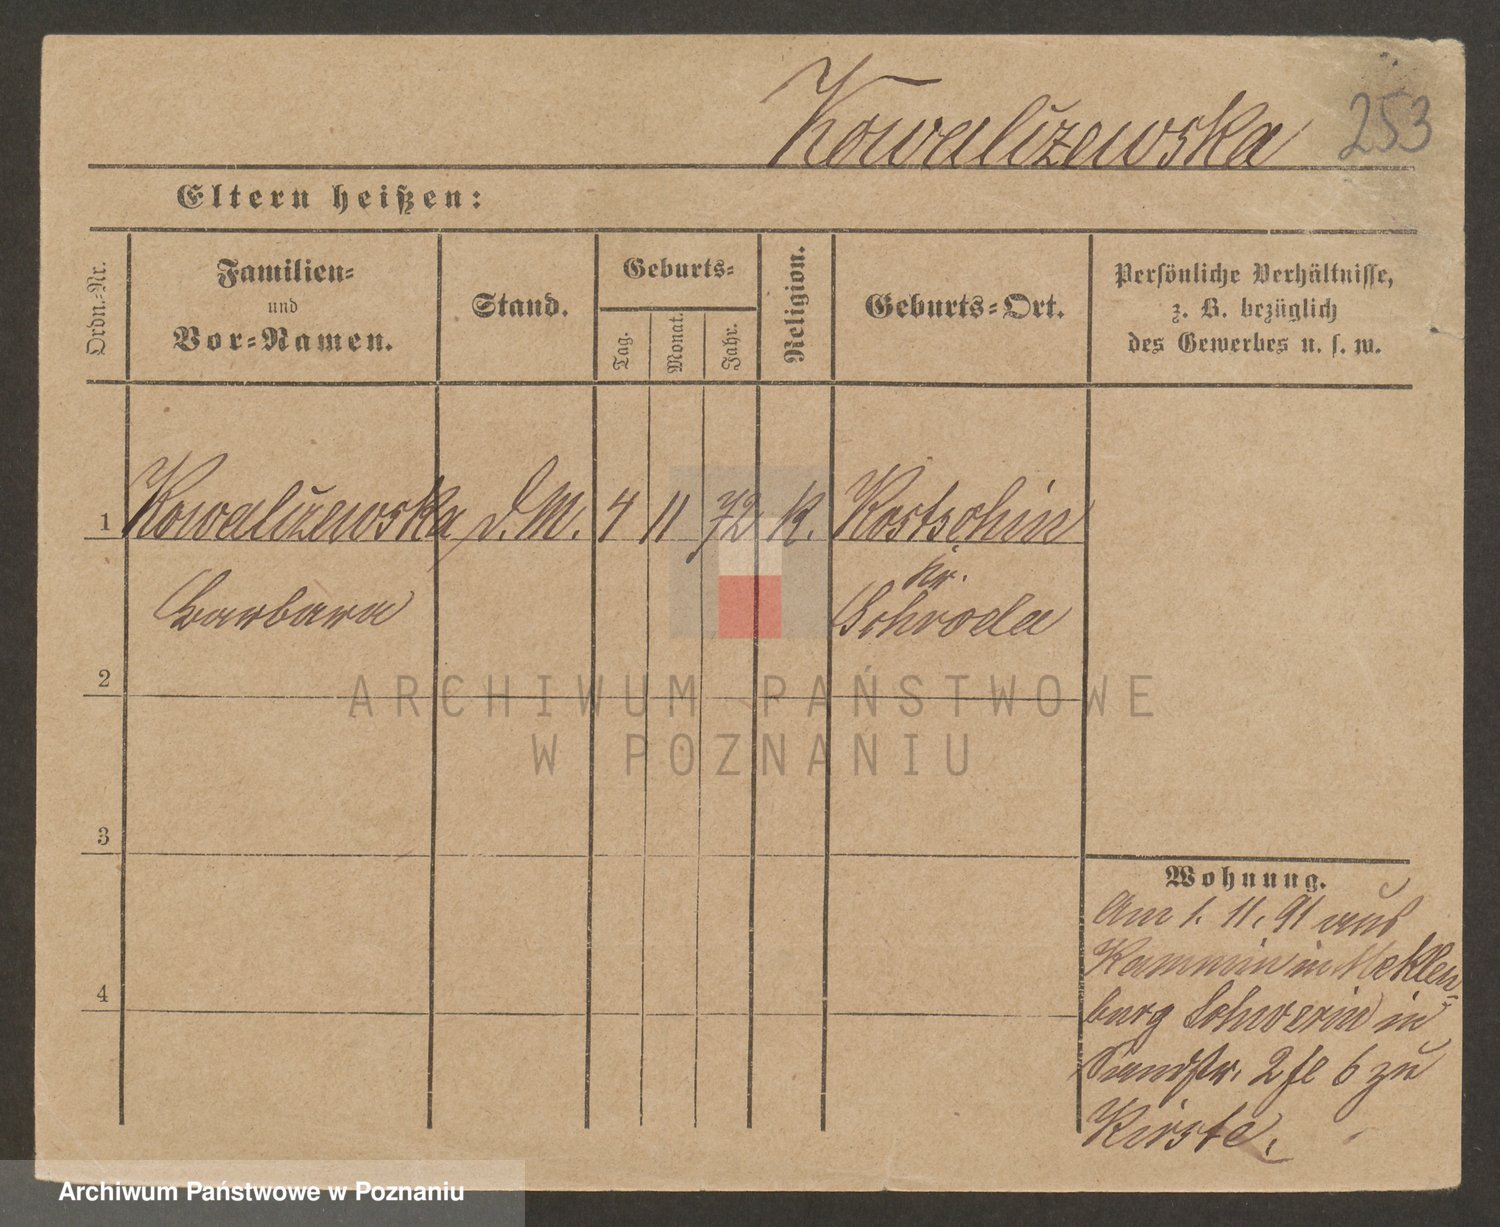 Kowaliszewska 253
Eltern heißen:
Ordn.-Nr.
Familien-
und
Vor-Namen.
Stand.
Geburts-
Tag.
Monat.
Jahr.
Religion.
Geburts-Ort.
Persönliche Verhältnisse,
z. B. bezüglich
des Gewerbes u. s. w.
1 Kowaliszewska d. M. 4 11 72 K. Kostschin
Kr.
Barbara Schroda
2
ARCHIWUM PAŃSTWOWE
W POZNANIU
3
Wohnung.
Am 1. 11. 91 aus
Kammin in Meklen-
4
burg Schwerin in
Sandstr. 2 fl 6 zu
Kirste.
Archiwum Państwowe w Poznaniu